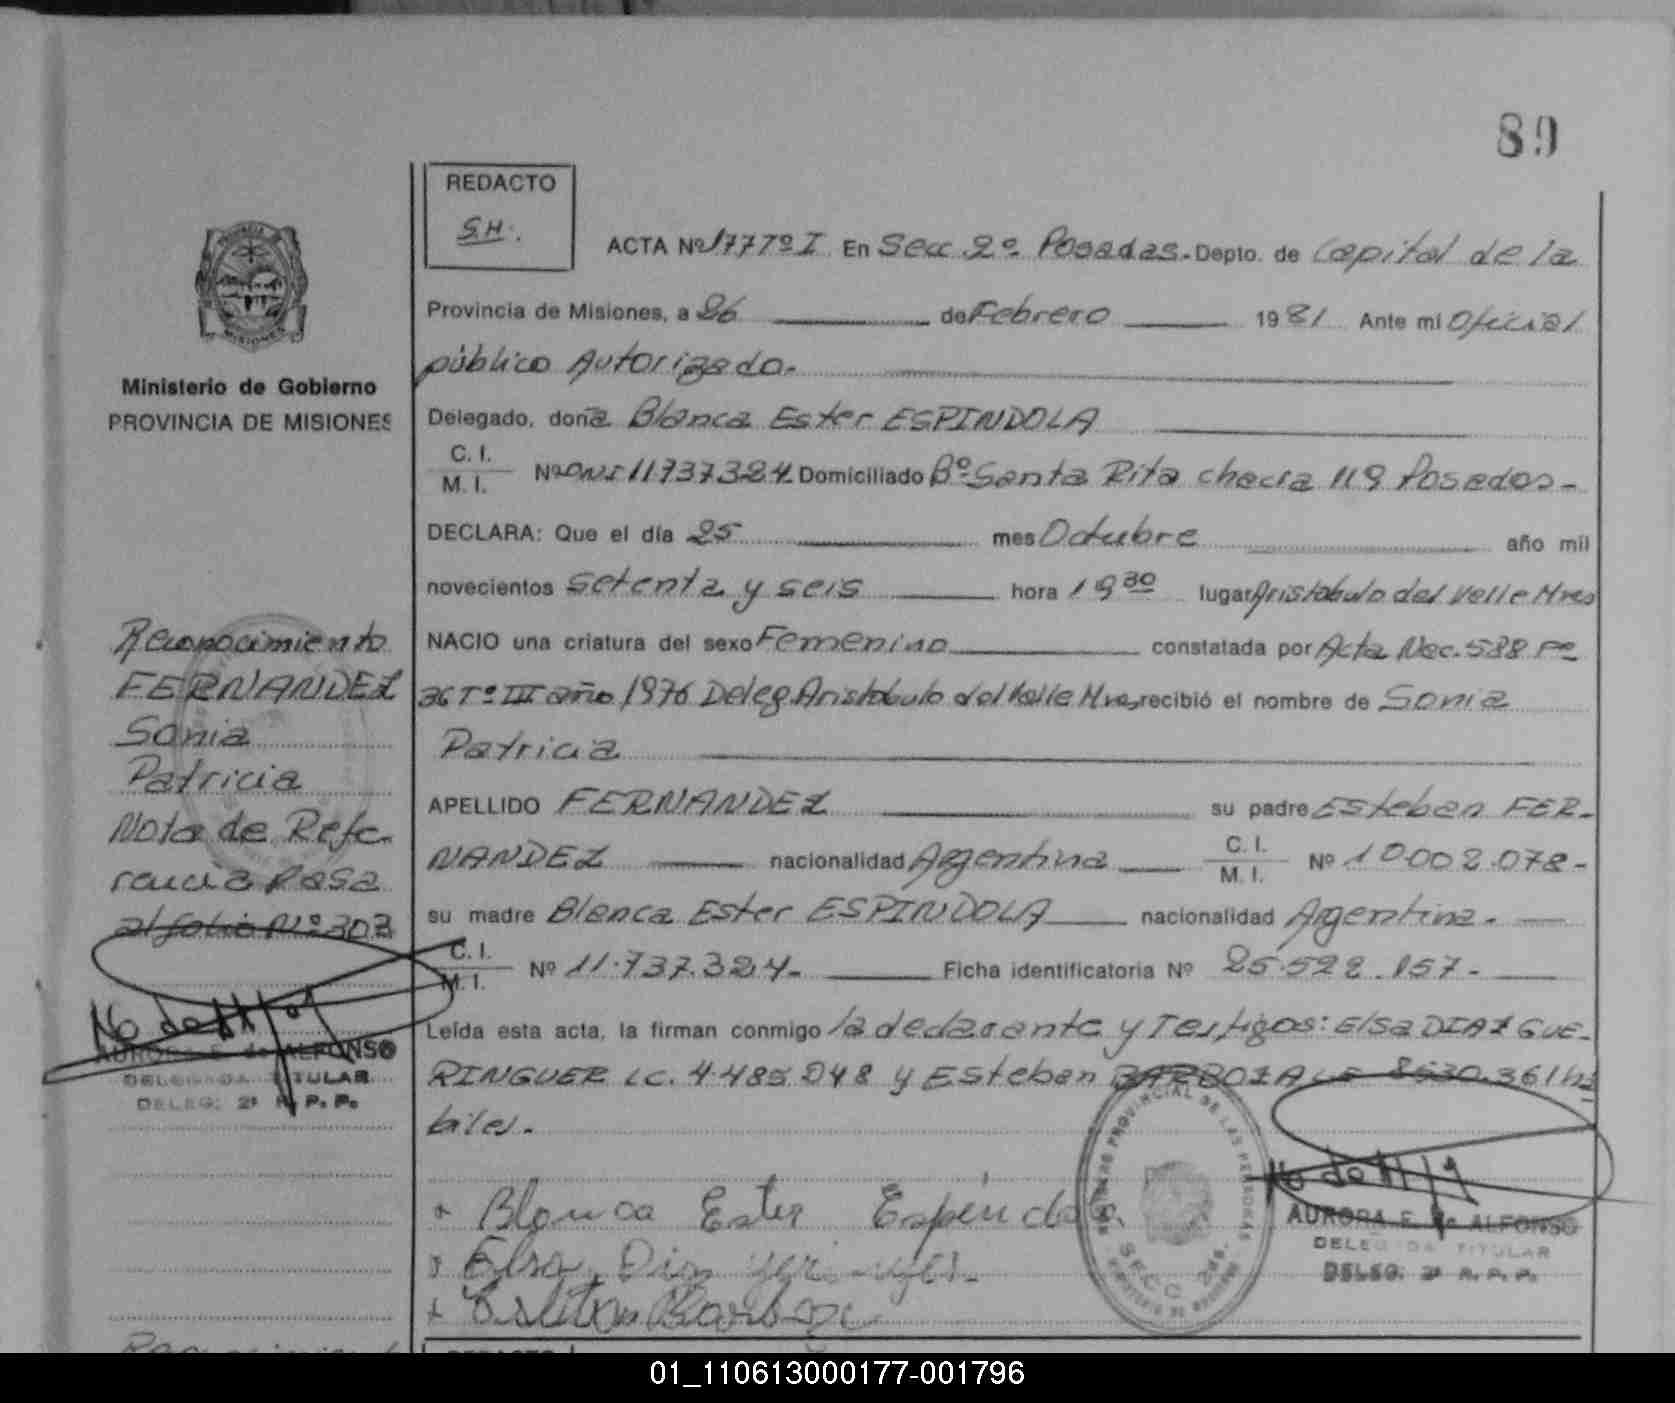 89
REDACTO
S.H.
ACTA Nº 177 Tº I En Secc. 2º Posadas. Depto. de Capital de la
Provincia de Misiones, a 26 de Febrero 1981 Ante mi Oficial
público Autorizado.
Delegado, doña Blanca Ester ESPINDOLA
C. I.
M. I. Nº DNI 11.737.324. Domiciliado Bº Santa Rita chacra 119 Posadas-
DECLARA: Que el día 25 mes Octubre año mil
novecientos setenta y seis hora 19 30 lugar Aristobulo del Valle Mnes
NACIO una criatura del sexo Femenino constatada por Acta Nac. 588 Fº
36 Tº III año 1976 Deleg Aristobulo del Valle Mnes recibió el nombre de Sonia
Patricia
APELLIDO FERNANDEZ su padre Esteban FER-
NANDEZ nacionalidad Argentina C. I.
M. I. Nº 10.002.078-
su madre Blanca Ester ESPINDOLA nacionalidad Argentina.
C. I.
M. I. Nº 11.737.324- Ficha identificatoria Nº 25.522.157-
Leída esta acta, la firman conmigo la declarante y Testigos: Elsa DIAZ GUE-
RINGUER LC. 4.485.048 y Esteban BARBOZA LE 8530.361 há
biles.
Blanca Ester Espíndola
Elsa Diaz
Esteban Barboza
PROVINCIAL DE LAS PERSONAS
SECC 2da.
AURORA E. de ALFONSO
DELEGADA TITULAR
DELEG. 2ª R. P. P.
PROVINCIA DE
MISIONES
Ministerio de Gobierno
PROVINCIA DE MISIONES
Reconocimiento
FERNANDEZ
Sonia
Patricia
Nota de Refe-
rencia Pasa
al folio Nº 303
AURORA E. de ALFONSO
DELEGADA TITULAR
DELEG: 2ª R. P. P.
REDACTO
01_110613000177-001796